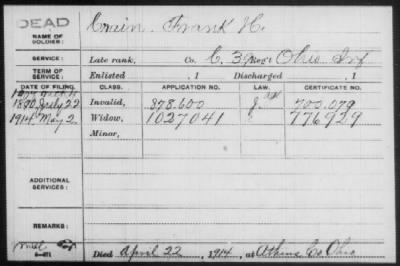 DEAD
NAME OF SOLDIER:
Frank H.
SERVICE:
Late rank, Co. C. 3 Reg't Ohio Inf
TERM OF SERVICE:
Enlisted , 1 Discharged , 1
DATE OF FILING. CLASS. APPLICATION NO. LAW. CERTIFICATE NO.
1890 July 22 Invalid, 878.600 700.079
1914 May 2 Widow, 1027041 776929
Minor,
ADDITIONAL SERVICES:
REMARKS:
Died April 22, 1914, at Athens Co Ohio